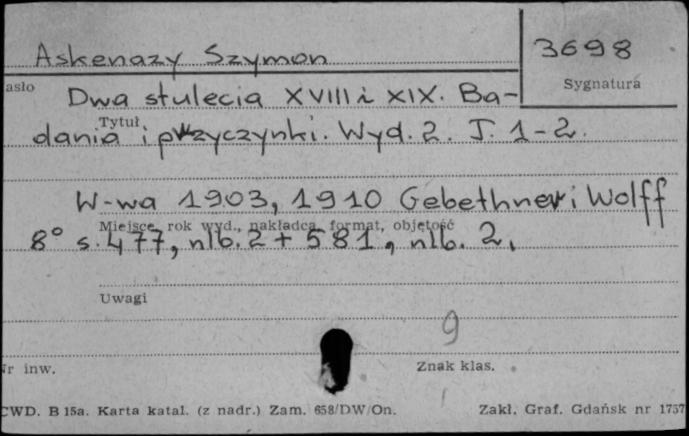 Askenazy Szymon
3698
asło
Sygnatura
Dwa stulecia XVIII i XIX. Ba-
Tytuł
dania i przyczynki. Wyd. 2. T. 1-2.
W-wa 1903, 1910 Gebethner i Wolff
Miejsce, rok wyd., nakładca, format, objętość
8° s. 477, nlb. 2 + 581, nlb. 2,
Uwagi
9
Nr inw.
Znak klas.
CWD. B 15a. Karta katal. (z nadr.) Zam. 658/DW/On.
Zakł. Graf. Gdańsk nr 1757